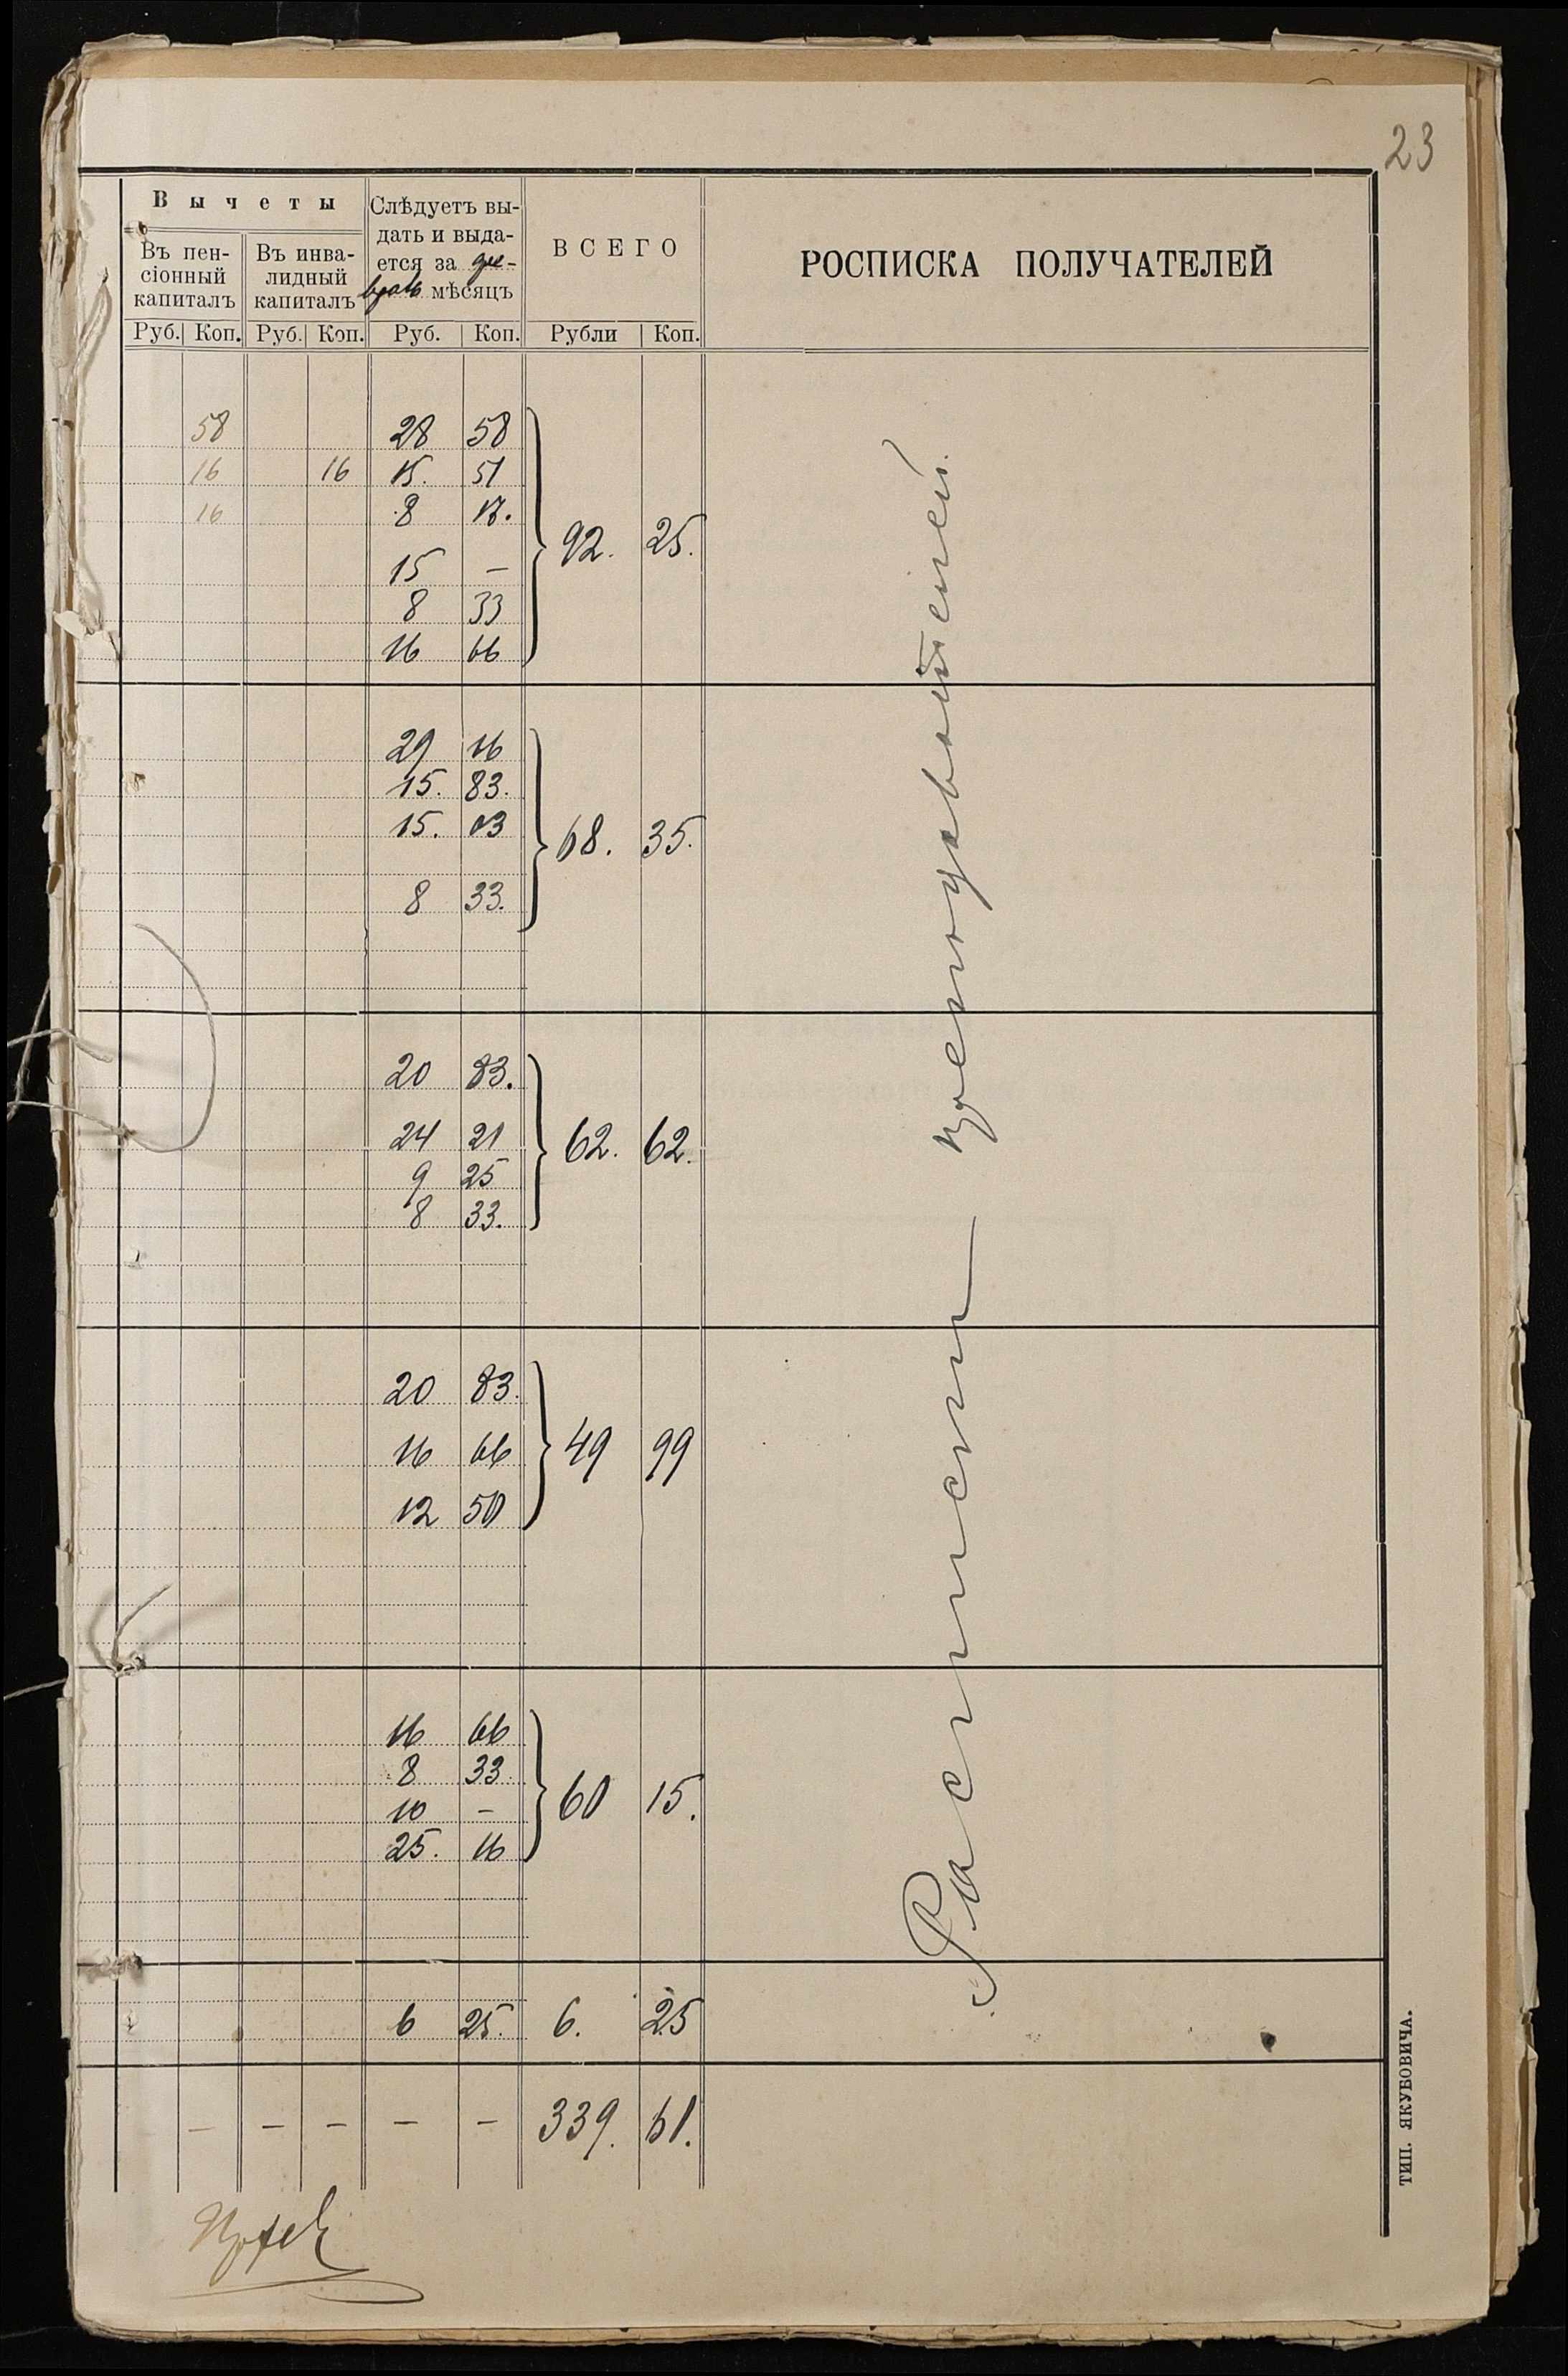 23
Вычеты
Въ пенсіонный капиталъ
Въ инвалидный капиталъ
Слѣдуетъ вы-
дать и выда-
ется за фев-
раль мѣсяцъ
ВСЕГО
РОСПИСКА ПОЛУЧАТЕЛЕЙ
Руб. Коп. Руб. Коп. Руб. Коп. Рубли Коп.
58 28 58
16 16 15. 51
16 8 17.
92. 25.
15 —
8 33
16 66
29 16
15. 83.
15. 03
68. 35.
8 33.
20 83.
24 21
62. 62.
9 25
8 33.
20 83.
16 66
49 99
12 50
16 66
8 33
60 15.
10 —
25. 16
6 25. 6. 25
— — — — — 339. 61.
Расписки преподавателей.
ТИП. ЯКУБОВИЧА.